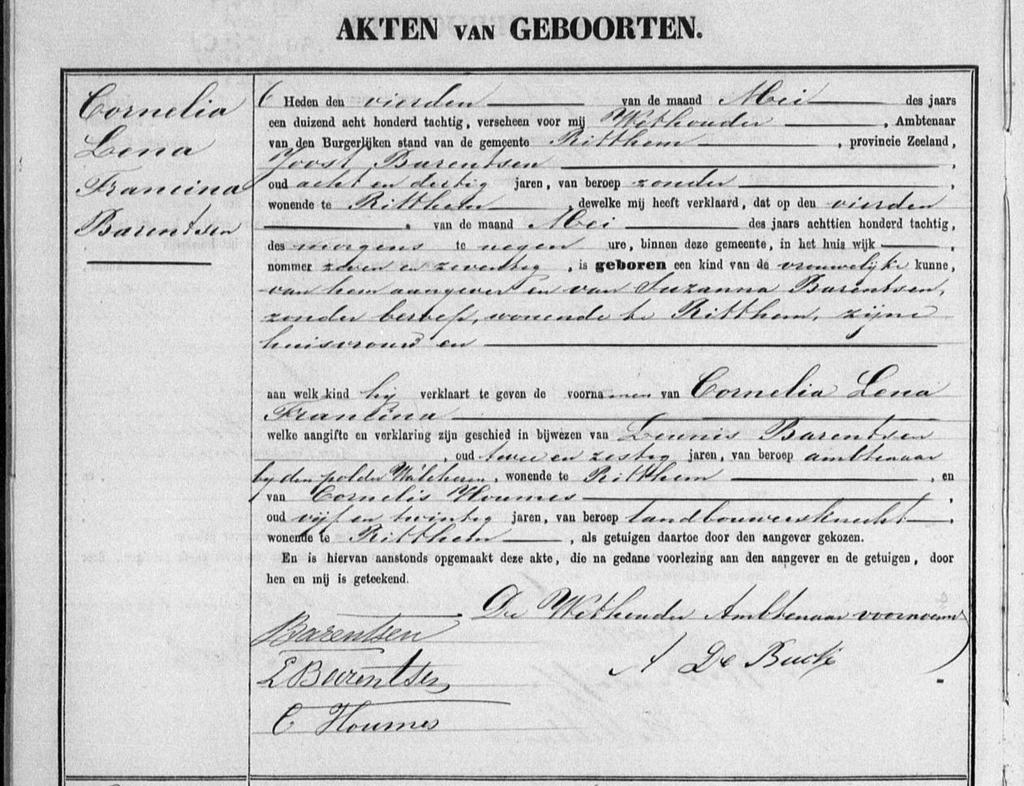 AKTEN VAN GEBOORTEN.
Cornelia
Lena
Francina
Barentsen
Heden den vierden van de maand Mei des jaars
een duizend acht honderd tachtig, verscheen voor mij Wethouder, Ambtenaar
van den Burgerlijken stand van de gemeente Ritthem, provincie Zeeland,
Joost Barentsen,
oud acht en dertig jaren, van beroep zonder,
wonende te Ritthem, dewelke mij heeft verklaard, dat op den vierden
van de maand Mei des jaars achttien honderd tachtig,
des morgens te negen ure, binnen deze gemeente, in het huis wijk,
nommer zeven en zeventig, is geboren een kind van de vrouwelijke kunne,
van hem aangever en van Suzanna Barentsen,
zonder beroep, wonende te Ritthem, zijne
huisvrouw en
aan welk kind hij verklaart te geven de voornamen van Cornelia Lena
Francina
welke aangifte en verklaring zijn geschied in bijwezen van Leunis Barentsen
, oud twee en zestig jaren, van beroep ambtenaar
bij den polder Walcheren, wonende te Ritthem, en
van Cornelis Houmes,
oud vijf en twintig jaren, van beroep landbouwersknecht,
wonende te Ritthem, als getuigen daartoe door den aangever gekozen.
En is hiervan aanstonds opgemaakt deze akte, die na gedane voorlezing aan den aangever en de getuigen, door
hen en mij is geteekend.
De Wethouder Ambtenaar voornoemd
Barentsen
A De Buck
L Barentsen
C Houmes